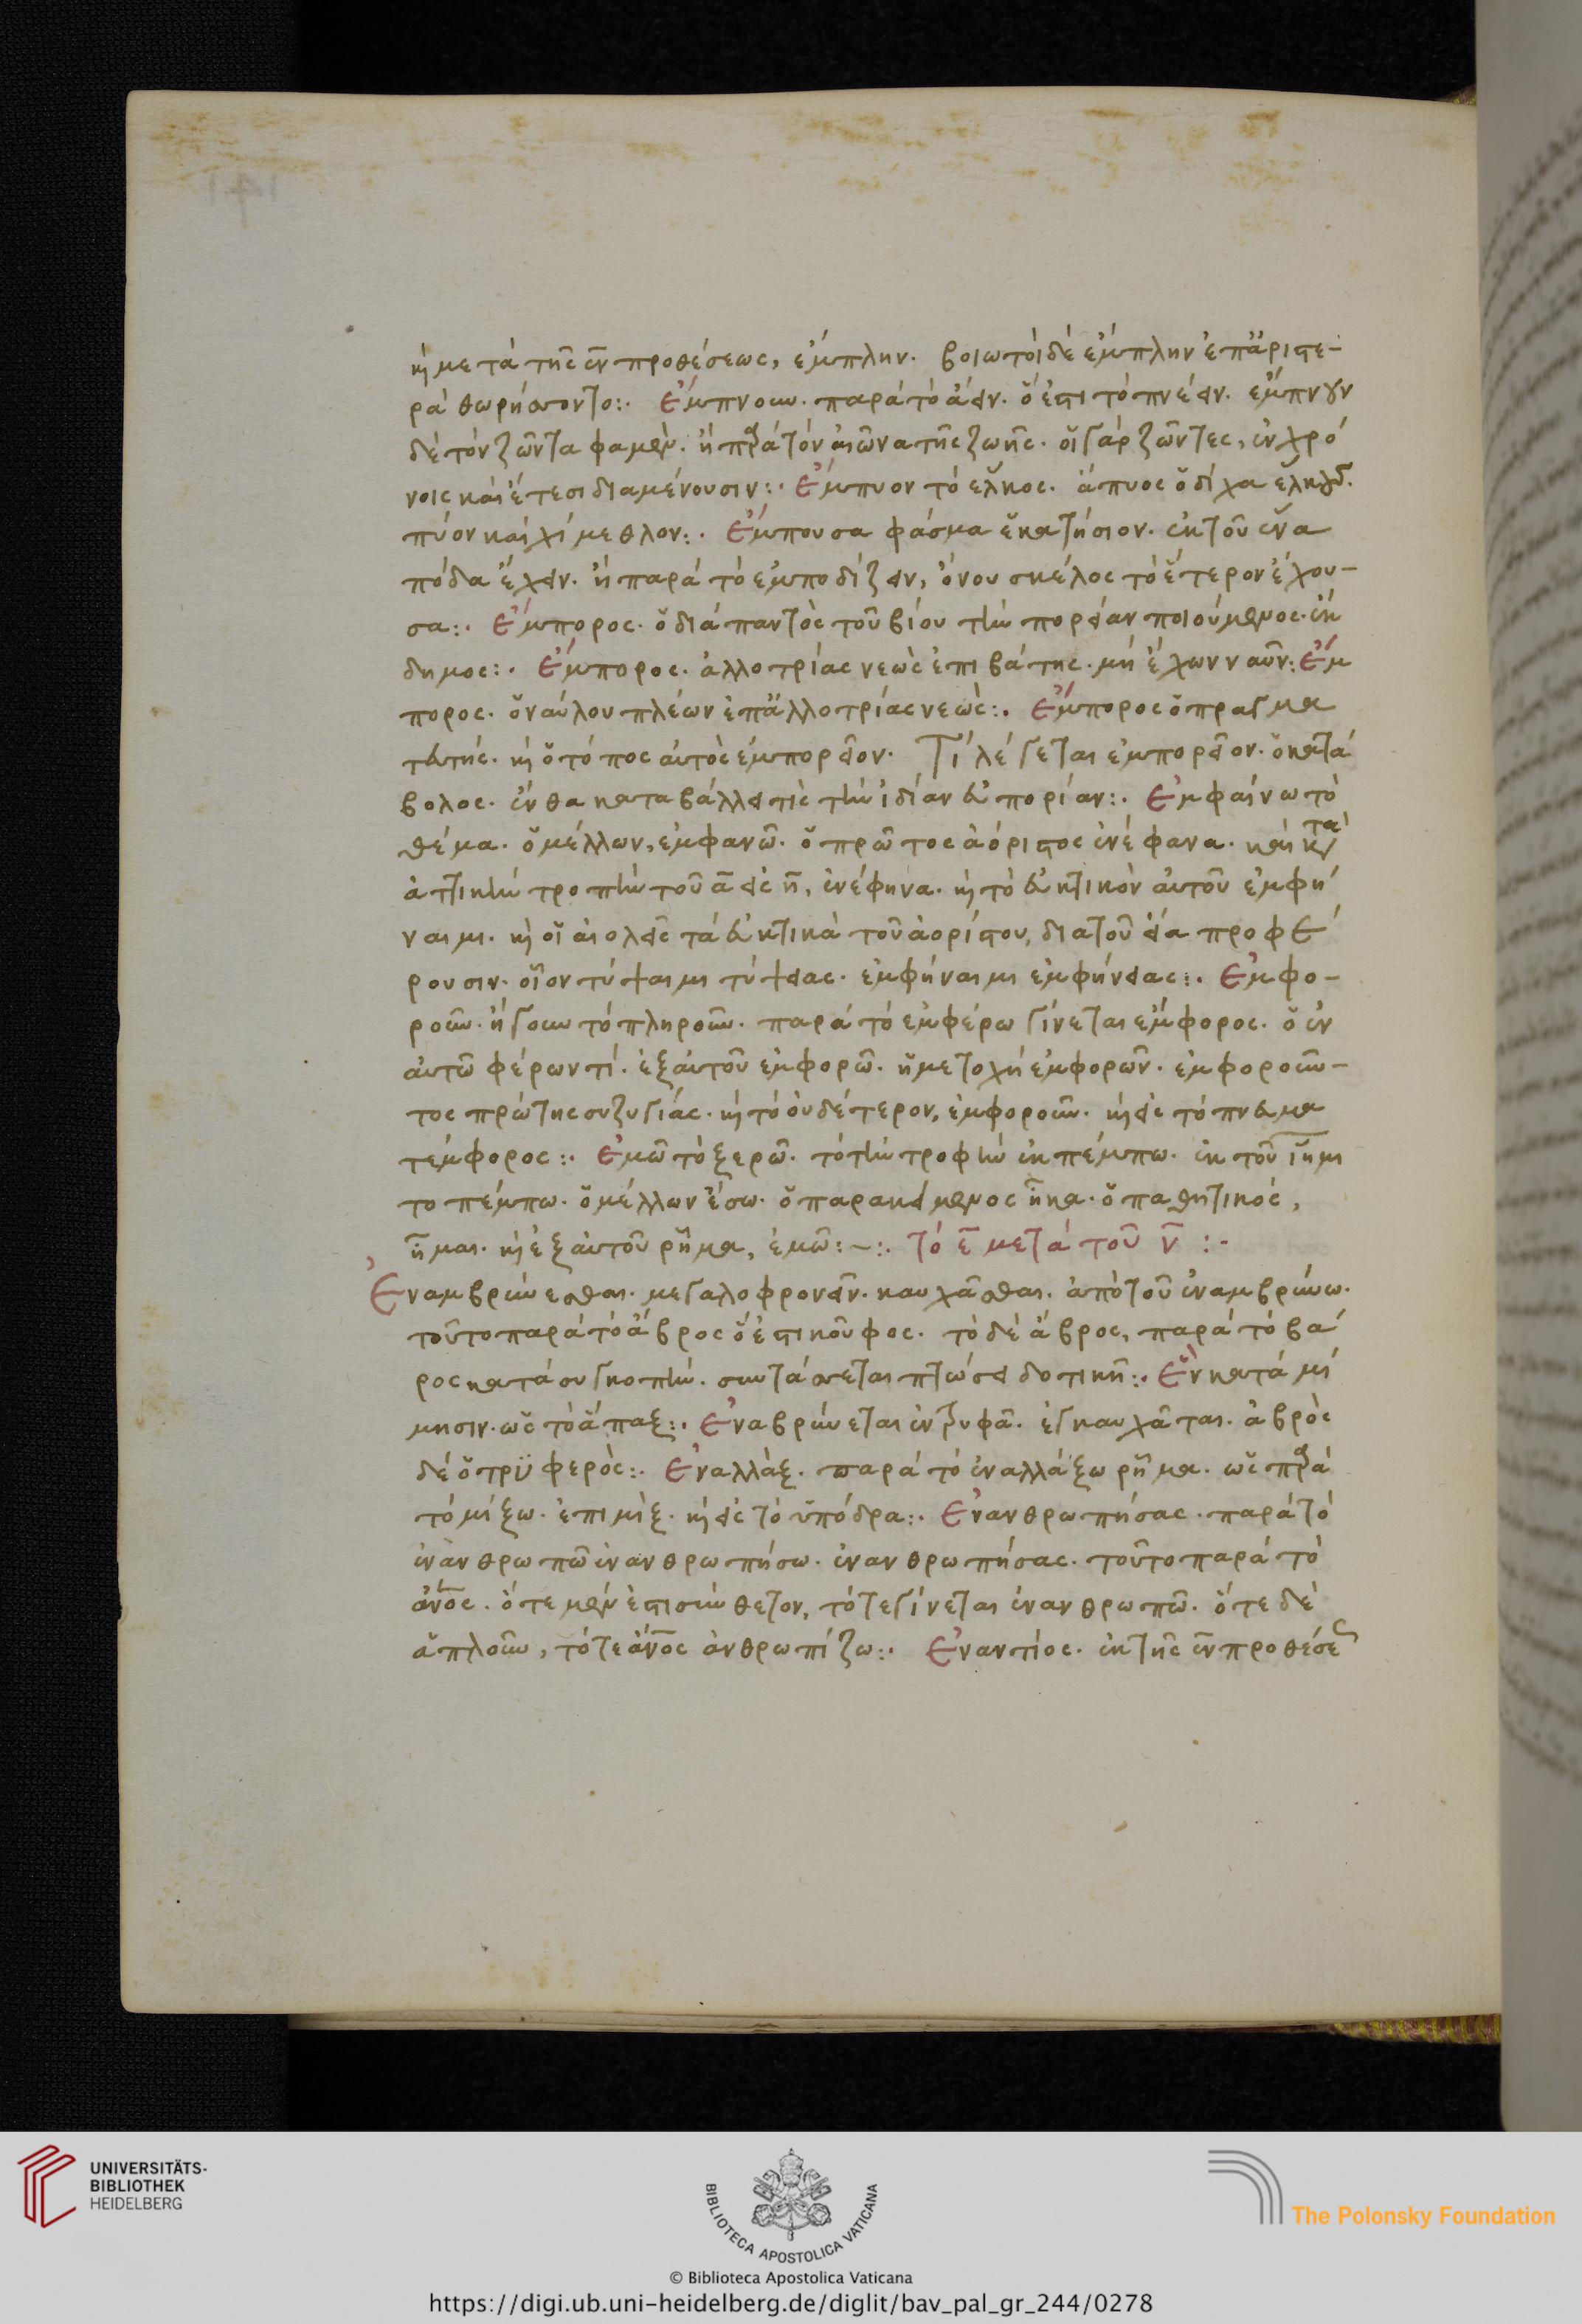 καὶ μετὰ τῆς ἐν προθέσεως, ἔμπλην. βοιωτοὶ δὲ ἔμπλην ἐπ' ἀριστε-
ρὰ θωρήσσοντο:. Ἔμπνουν. παρὰ τὸ ἄειν. ὅ ἐστι τὸ πνέειν. ἔμπνουν
δὲ τὸν ζῶντα φαμέν. ἢ παρὰ τὸν αἰῶνα τῆς ζωῆς. οἱ γὰρ ζῶντες, ἐν χρό
νοις καὶ ἔτεσι διαμένουσιν:. Ἔμπυον τὸ ἕλκος. ἄπυος ὁ δίχα ἕλκους.
πύον καὶ χίμεθλον:. Ἔμπουσα φάσμα ἑκατήσιον. ἐκ τοῦ ἕνα
πόδα ἔχειν. ἢ παρὰ τὸ ἐμποδίζειν, ὄνου σκέλος τὸ ἕτερον ἔχου-
σα:. Ἔμπορος. ὁ διὰ παντὸς τοῦ βίου τὴν πορείαν ποιούμενος. ἔκ
δημος:. Ἔμπορος. ἀλλοτρίας νεὼς ἐπιβάτης. μὴ ἔχων ναῦν:. Ἔμ
πορος. ὁ ναύλου πλέων ἐπ' ἀλλοτρίας νεώς:. Ἔμπορος ὁ πραγμα
τευτής. καὶ ὁ τόπος αὐτὸς ἐμπορεῖον. Τί λέγεται ἐμπορεῖον. ὁ κατά
βολος. ἔνθα καταβάλλει τις τὴν ἰδίαν εὐπορίαν:. Ἐμφαίνω τὸ
θέμα. ὁ μέλλων, ἐμφανῶ. ὁ πρῶτος ἀόριστος ἐνέφανα. καὶ κατὰ
ἀττικὴν τροπὴν τοῦ α εἰς η, ἐνέφηνα. καὶ τὸ εὐκτικὸν αὐτοῦ ἐμφή
ναιμι. καὶ οἱ αἰολεῖς τὰ εὐκτικὰ τοῦ ἀορίστου, διὰ τοῦ εία προφέ
ρουσιν. οἷον τύψαιμι τύψειας. ἐμφήναιμι ἐμφήνειας:. Ἐμφο-
ροῦν. ἤγουν τὸ πληροῦν. παρὰ τὸ ἐμφέρω γίνεται ἔμφορος. ὁ ἐν
αὐτῶ φέρων τί. ἐξ αὐτοῦ ἐμφορῶ. ἡ μετοχὴ ἐμφορῶν. ἐμφοροῦν-
τος πρώτης συζυγίας. καὶ τὸ οὐδέτερον, ἐμφοροῦν. καὶ εἰς τὸ πνευμα
τέμφορος:. Ἐμῶ τὸ ξερῶ. τὸ τὴν τροφὴν ἐκπέμπω. ἐκ τοῦ ἵημι
το πέμπω. ὁ μέλλων ἕσω. ὁ παρακείμενος ἧκα. ὁ παθητικός,
ἧμαι. καὶ ἐξ αὐτοῦ ῥῆμα, ἐμῶ:~:. τὸ ε μετὰ τοῦ ν :-
Ἐναμβρύνεσθαι. μεγαλοφρονεῖν. καυχᾶσθαι. ἀπὸ τοῦ ἐναμβρύνω.
τοῦτο παρὰ τὸ ἄβρος ὅ ἐστι κοῦφος. τὸ δὲ ἄβρος, παρὰ τὸ βά
ρος κατὰ συγκοπήν. συντάσσεται πτώσει δοτικῆ:. Ἓν κατὰ μί
μησιν. ὡς τὸ ἅπαξ:. Ἐναβρύνεται ἐντρυφᾶ. ἐγκαυχᾶται. ἁβρὸς
δὲ ὁ τρυφερὸς:. Ἐναλλάξ. παρὰ τὸ ἐναλλάξω ῥῆμα. ὡς παρὰ
τὸ μίξω. ἐπιμίξ. καὶ εἰς τὸ ὑπόδρα:. Ἐνανθρωπήσας. παρὰ τὸ
ἐνανθρωπῶ ἐνανθρωπήσω. ἐνανθρωπήσας. τοῦτο παρὰ τὸ
ἄνος. ὅτε μέν ἐστι σύνθετον, τότε γίνεται ἐνανθρωπῶ. ὅτε δὲ
ἁπλοῦν, τότε ἄνος ἀνθρωπίζω:. Ἐναντίος. ἐκ τῆς ἐν προθέσε
UNIVERSITÄTS-
BIBLIOTHEK
HEIDELBERG
BIBLIOTECA APOSTOLICA VATICANA
The Polonsky Foundation
© Biblioteca Apostolica Vaticana
https://digi.ub.uni-heidelberg.de/diglit/bav_pal_gr_244/0278